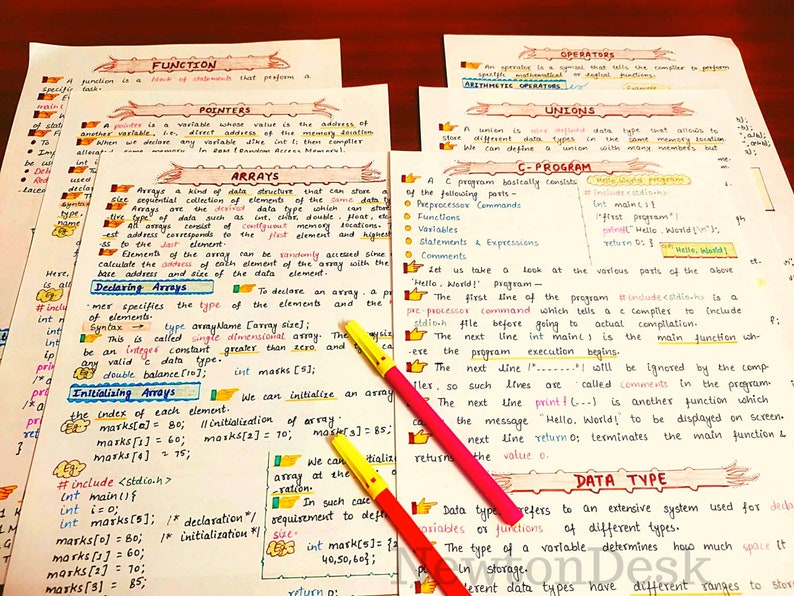 FUNCTION
A function is a block of statements that perform a
specifi task.
main(
POINTERS
A pointer is a variable whose value is the address of
another variable, i.e., direct address of the memory location.
When we declare any variable like int i; then compiler
in RAM (Random Access Memory).
OPERATORS
An operator is a symbol that tells the complier to perform
specific mathematical or logical functions.
ARITHMETIC OPERATORS
Example
UNIONS
A union is user defined data type that allows to
store different data types in the same memory location
We can define a union with many members but
ARRAYS
Arrays a kind of data structure that can store a
size sequential collection of elements of the same data ty
Arrays are the desired data type which can store
tive type of data such as int, char, double, float, etc.
All arrays consist of contiguous memory locations.
est address corresponds to the first element and highes
ss to the last element.
Elements of the array can be randomly accessed since
calculate the address of each element of the array with the
base address and size of the data element.
Declaring Arrays
To declare an array, a pro
mer specifies the type of the elements and the
of elements.
Syntax → type arrayName [array size];
This is called single dimensional array. The
be an integer constant greater than zero and
any valid c data type.
Eg:- double balance[10]; int marks [5];
Initializing Arrays
We can initialize an array
the index of each element.
Eg:- marks[0] = 80; //initialization of array.
marks[1] = 60; marks[2] = 70; marks[3] = 85;
marks[4] = 75;
Eg:-
# include <stdio.h>
int main(){
int i=0;
marks[5]; /* declaration*/
marks[0] = 80; /* initialization */
marks[1] = 60;
marks[2] = 70;
marks[3] = 85;
We can initializ
array at the
-ration.
In such case
requirement to defi
size.
Eg:- int mark[5] = {2
40,50,60};
return 0;
C-PROGRAM
A C program basically consists
of the following parts-
Preprocessor Commands
Functions
Variables
Statements & Expressions
Comments
"Hello, World program
# include<stdio.h>
int main() {
/*first program*/
printf("Hello, World!\n");
return 0; }
O/P: Hello, World!
Let us take a look at the various parts of the above
'Hello, World!' program —
The first line of the program #include<stdio.h> is a
pre-processor command which tells a c compiler to include
stdio.h file before going to actual compilation.
The next line int main() is the main function wh-
-ere the program execution begins.
The next line /*.......*/ will be ignored by the comp-
iler, so such lines are called comments in the program.
The next line printf(---) is another function which
the message "Hello, World!" to be displayed on screen.
next line return 0; terminates the main function &
returns the value 0.
DATA TYPE
Data types refers to an extensive system used for decla
variables or functions of different types.
The type of a variable determines how much space it
in storage.
different data types have different ranges to stor
NewtonDesk